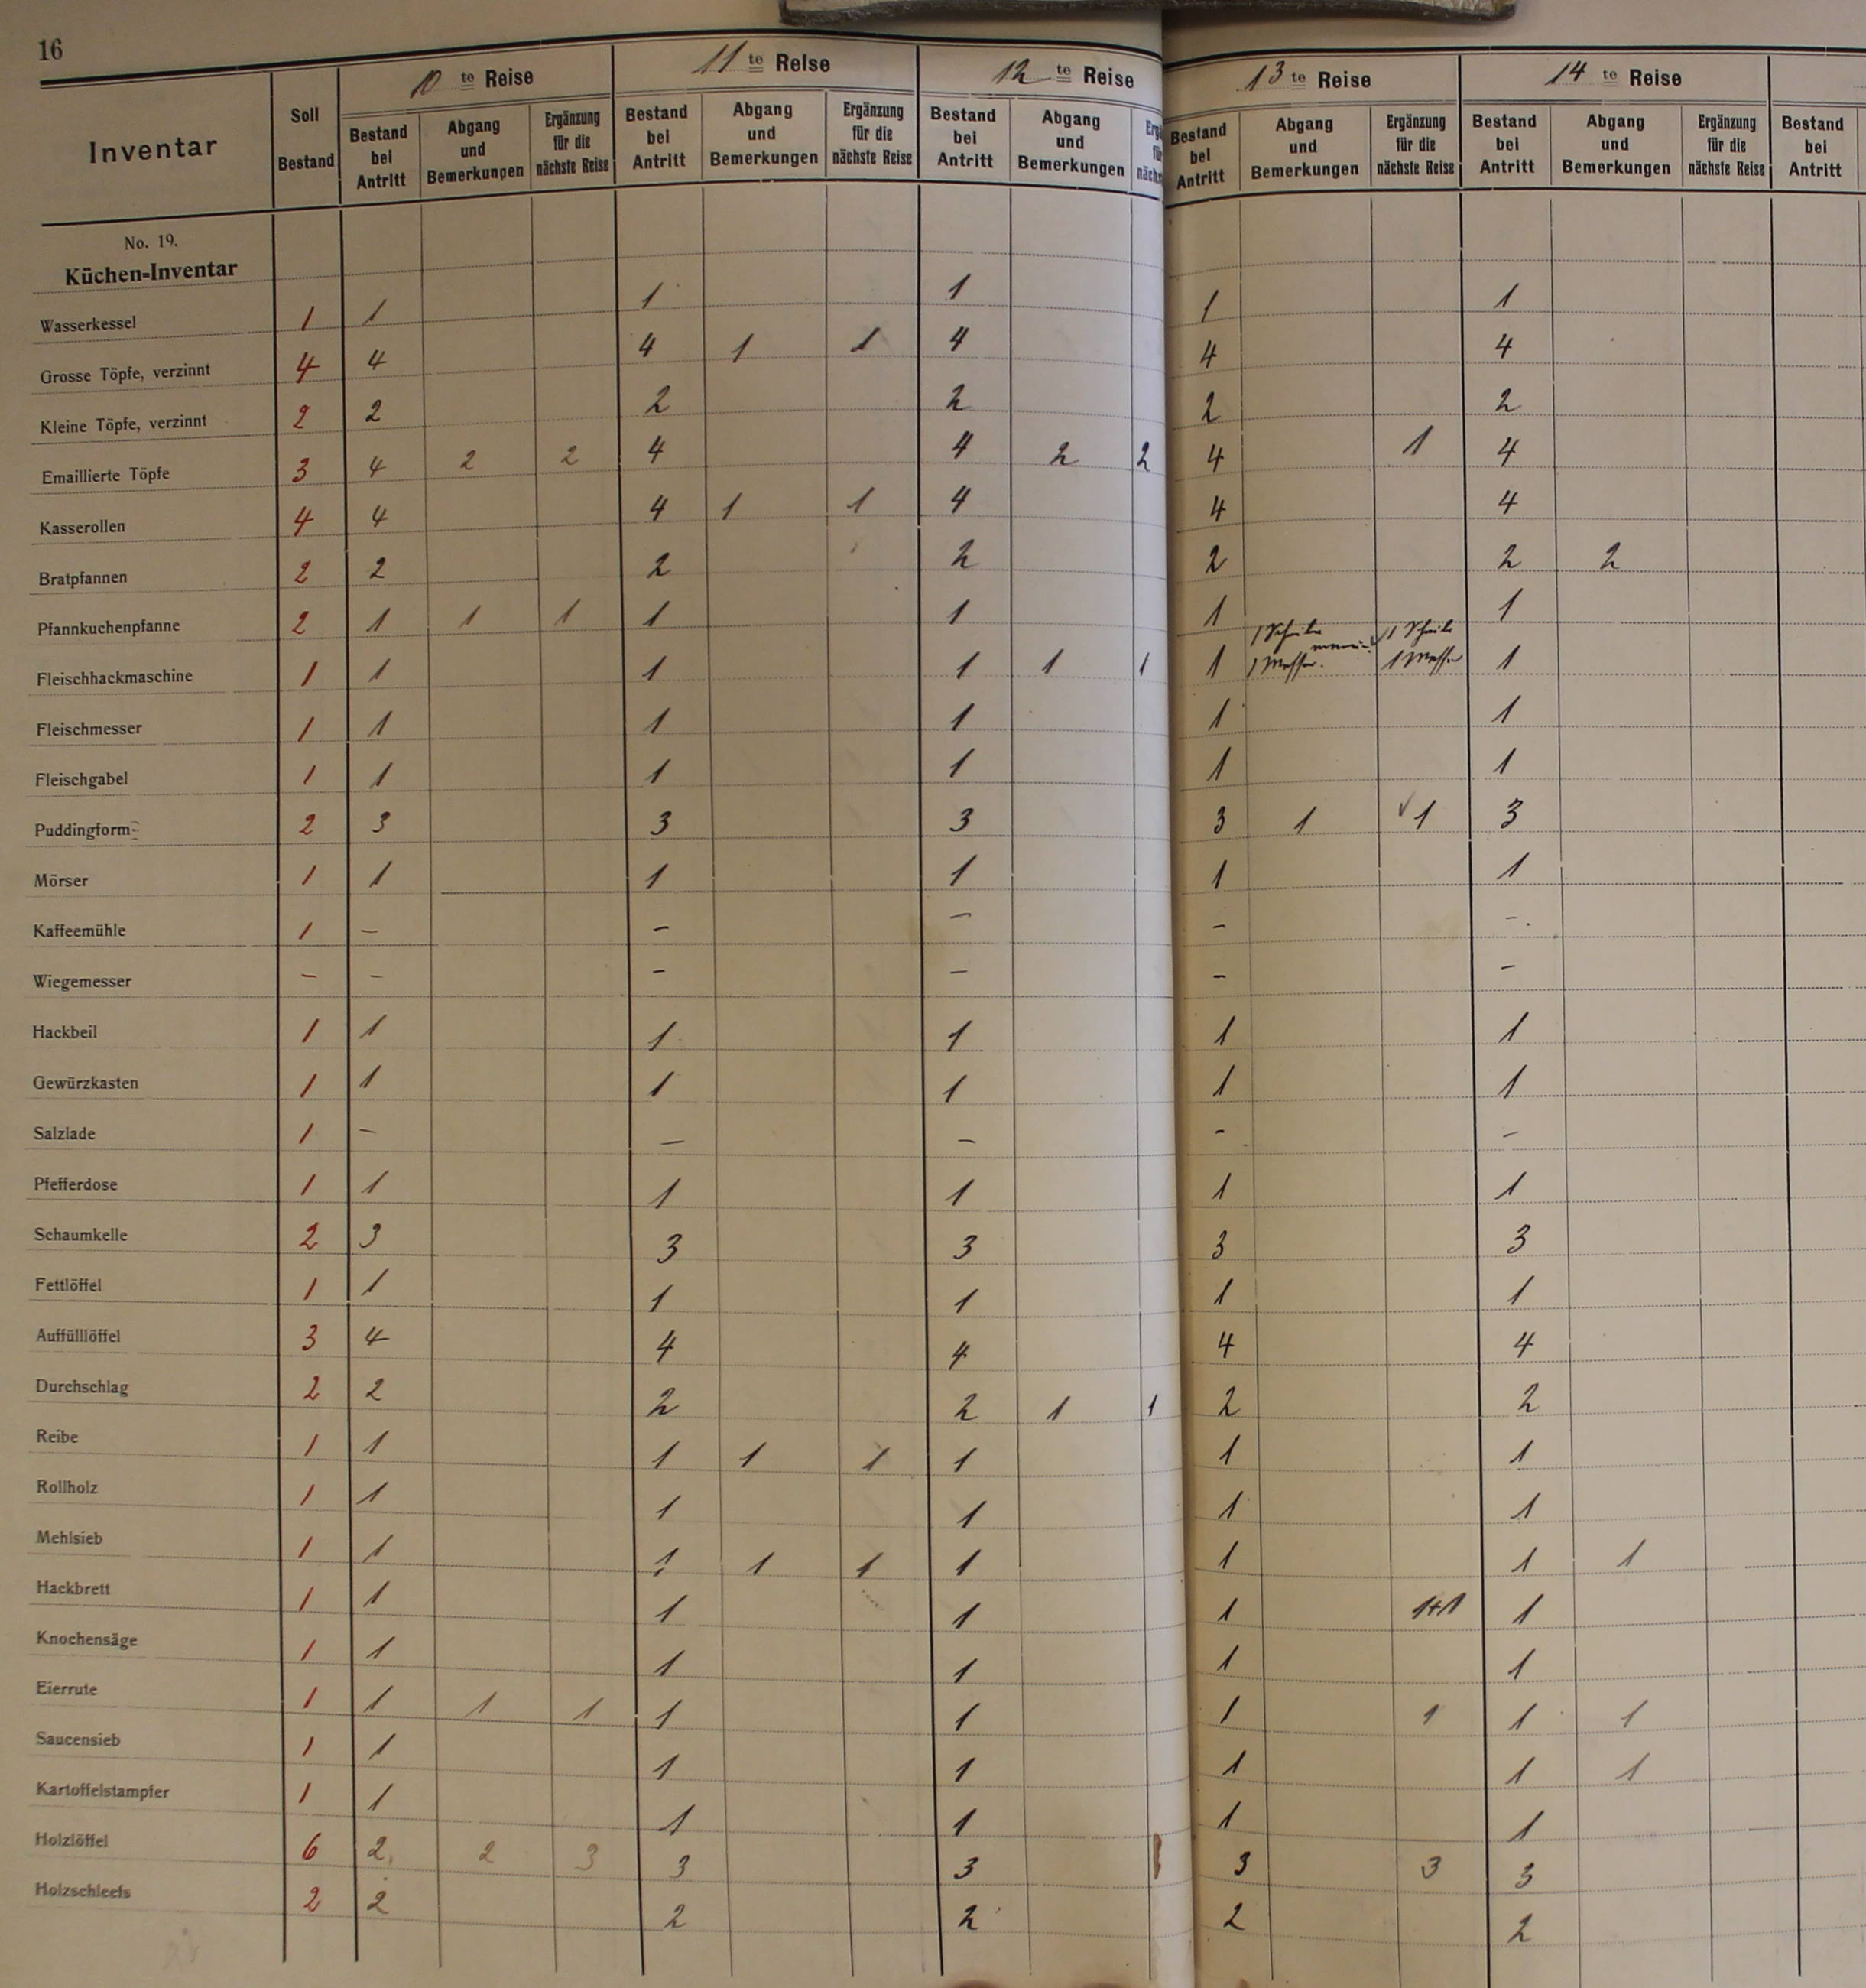 16
10 te Reise 11 te Reise 12 te Reise 13 te Reise 14 te Reise
Inventar Soll Bestand Bestand bei Antritt Abgang und Bemerkungen Ergänzung für die nächste Reise Bestand bei Antritt Abgang und Bemerkungen Ergänzung für die nächste Reise Bestand bei Antritt Abgang und Bemerkungen Bestand bei Antritt Abgang und Bemerkungen Ergänzung für die nächste Reise Bestand bei Antritt Abgang und Bemerkungen Ergänzung für die nächste Reise Bestand bei Antritt
No. 19.
Küchen-Inventar
Wasserkessel 1 1 1 1 1 1
Grosse Töpfe, verzinnt 4 4 4 1 1 4 4 4
Kleine Töpfe, verzinnt 2 2 2 2 2 2
Emaillierte Töpfe 3 4 2 2 4 4 2 2 4 1 4
Kasserollen 4 4 4 1 1 4 4 4
Bratpfannen 2 2 2 2 2 2 2
Pfannkuchenpfanne 2 1 1 1 1 1 1 1
Fleischhackmaschine 1 1 1 1 1 1 1 1 Scheibe 1 Messer. 1 Scheibe 1 Messer 1
Fleischmesser 1 1 1 1 1 1
Fleischgabel 1 1 1 1 1 1
Puddingform 2 3 3 3 3 1 √1 3
Mörser 1 1 1 1 1 1
Kaffeemühle 1 – – – – –
Wiegemesser – – – – – –
Hackbeil 1 1 1 1 1 1
Gewürzkasten 1 1 1 1 1 1
Salzlade 1 – – – – –
Pfefferdose 1 1 1 1 1 1
Schaumkelle 2 3 3 3 3 3
Fettlöffel 1 1 1 1 1 1
Auffülllöffel 3 4 4 4 4 4
Durchschlag 2 2 2 2 1 1 2 2
Reibe 1 1 1 1 1 1 1 1
Rollholz 1 1 1 1 1 1
Mehlsieb 1 1 1 1 1 1 1 1 1
Hackbrett 1 1 1 1 1 1+1 1
Knochensäge 1 1 1 1 1 1
Eierrute 1 1 1 1 1 1 1 1 1 1
Saucensieb 1 1 1 1 1 1 1
Kartoffelstampfer 1 1 1 1 1 1
Holzlöffel 6 2 2 3 3 3 3 3 3
Holzschleefs 2 2 2 2 2 2